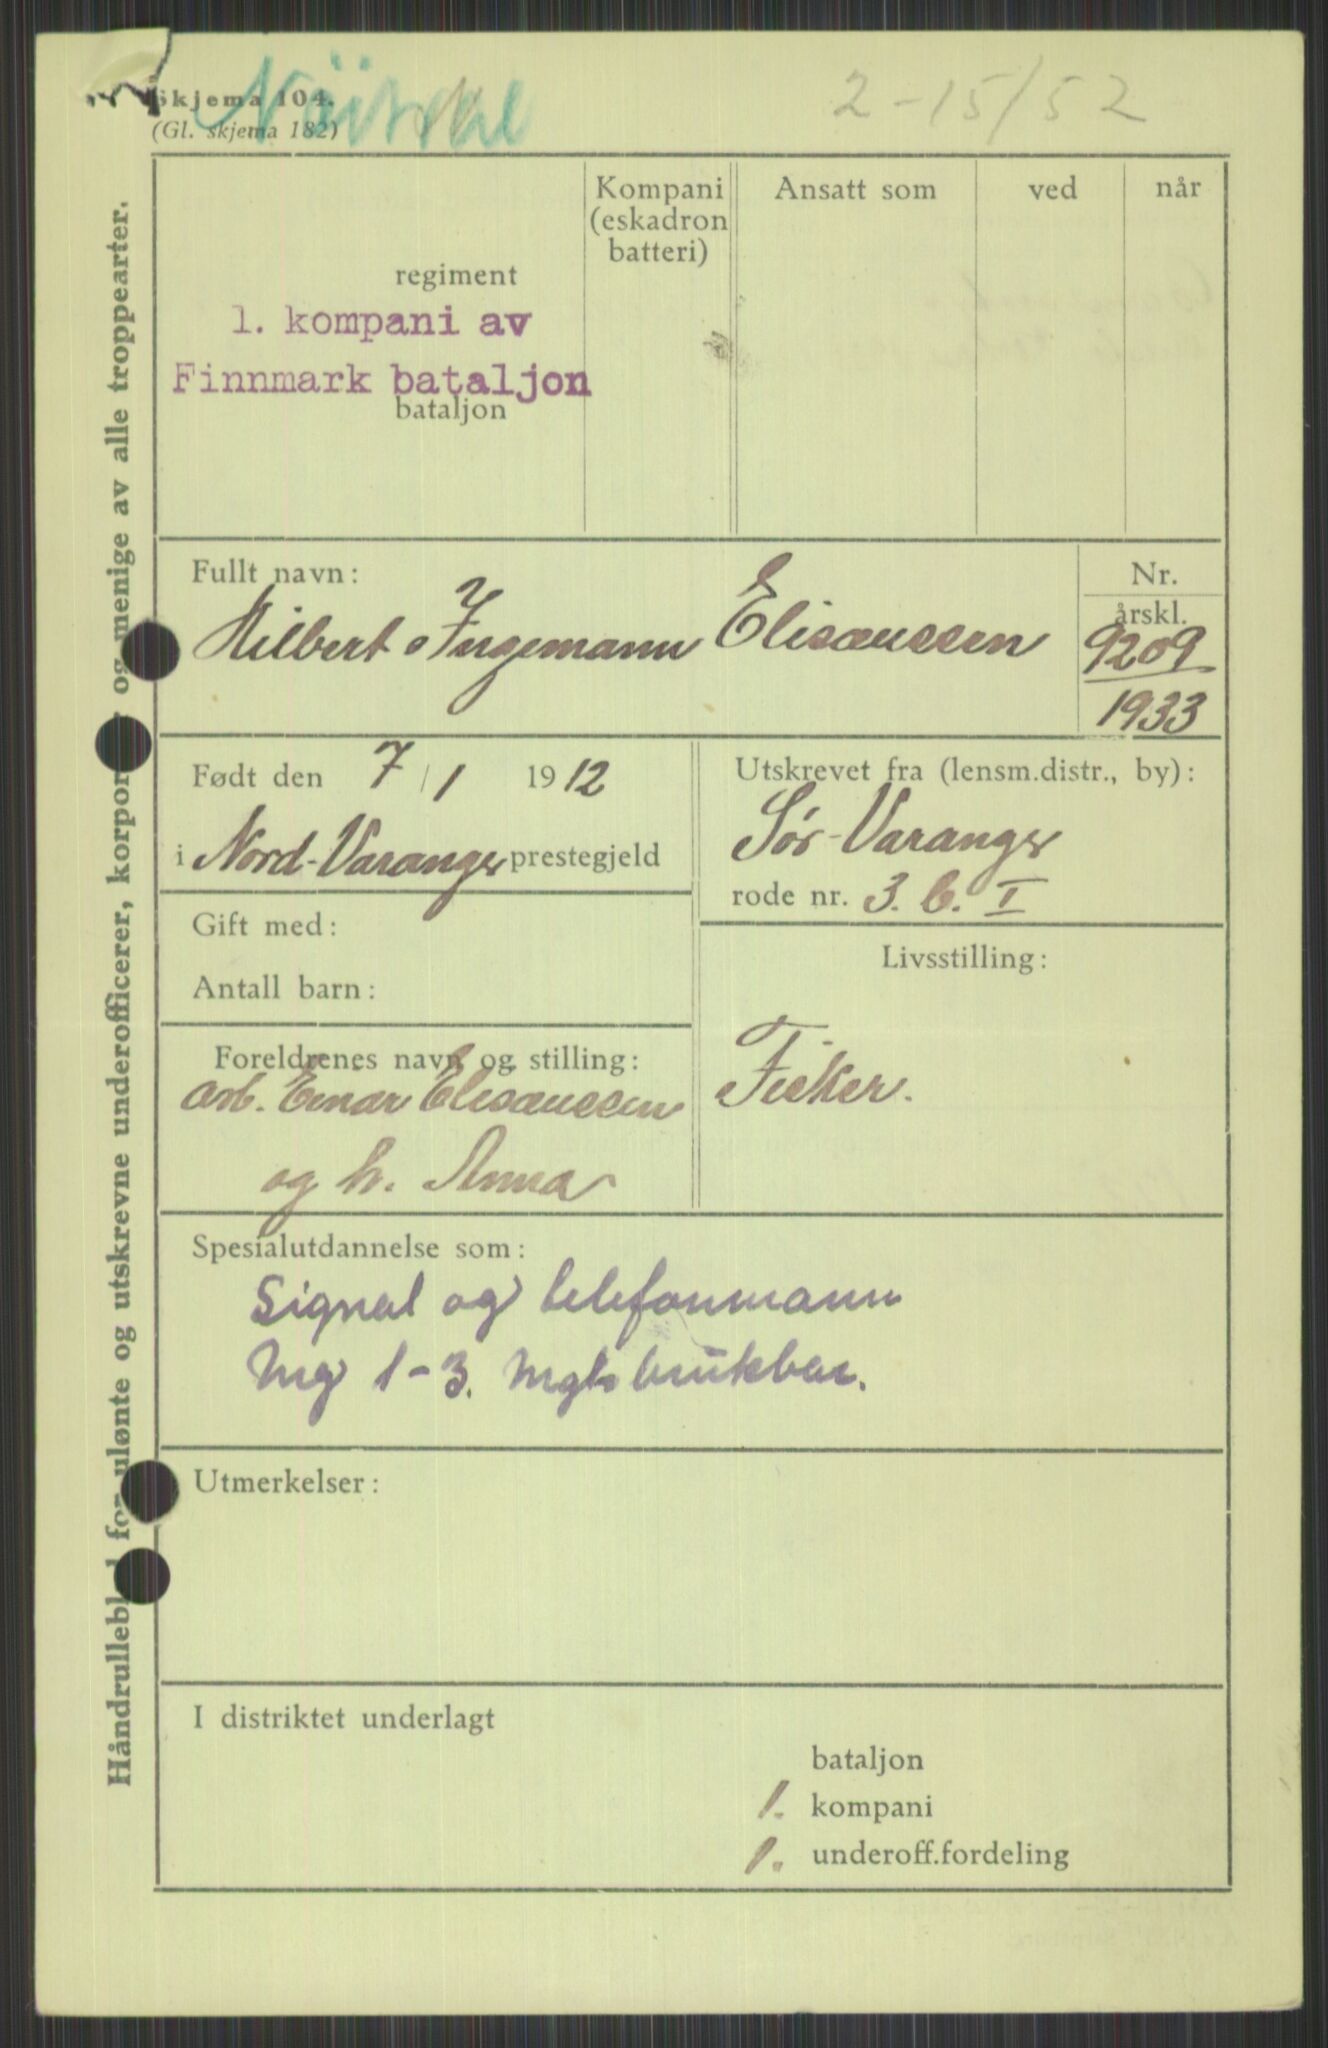 Skjema 104.
(Gl. skjema 182)
2-15/52
Håndrulleblad for ulønte og utskrevne underofficerer, korporaler og menige av alle troppearter.
regiment
1. kompani av
Finnmark bataljon
bataljon
Kompani
(eskadron
batteri)
Ansatt som
ved
når
Fullt navn:
Hilbert Ingemann Elisæussen
Nr.
årskl.
9209
1933
Født den 7/1 1912
i Nord-Varanger prestegjeld
Utskrevet fra (lensm.distr., by):
Sør-Varanger
rode nr. 3. b. I
Gift med:
Antall barn:
Livsstilling:
Fisker.
Foreldrenes navn og stilling:
arb. Einar Elisæussen
og h. Anna
Spesialutdannelse som:
Signal og telefonmann
Mg 1-3. Mgts brukbar.
Utmerkelser:
I distriktet underlagt
bataljon
1. kompani
1. underoff.fordeling